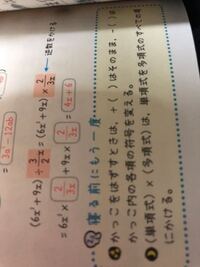 3a²−12ab
逆数をかける
(6x²+9x)÷\frac{3}{2}x=(6x²+9x)×\frac{2}{3x}
=6x²×\frac{2}{3x}+9x×\frac{2}{3x}=4x+6
寝る前にもう一度
かっこをはずすときは、+( )はそのまま、−( )は
かっこ内の各項の符号を変える。
(単項式)×(多項式)は、単項式を多項式のすべての項
にかける。